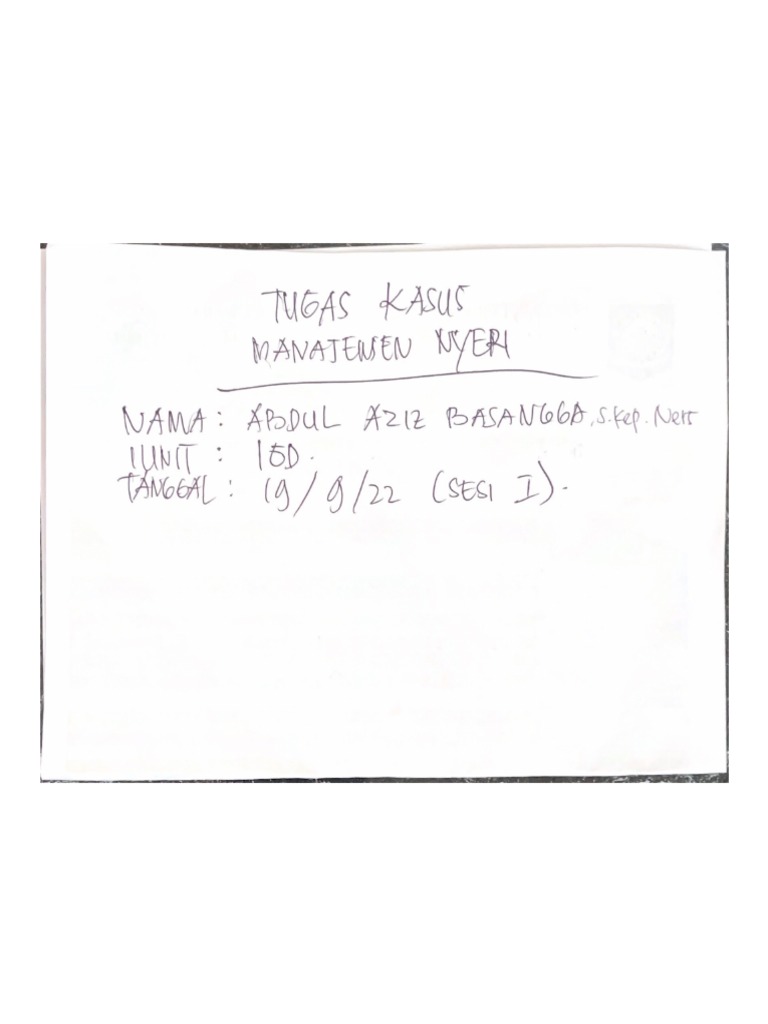 TUGAS KASUS
MANAJEMEN NYERI
NAMA : ABDUL AZIZ BASANGGA, S.Kep. Ners
UNIT : IGD.
TANGGAL : 19/9/22 (SESI I).